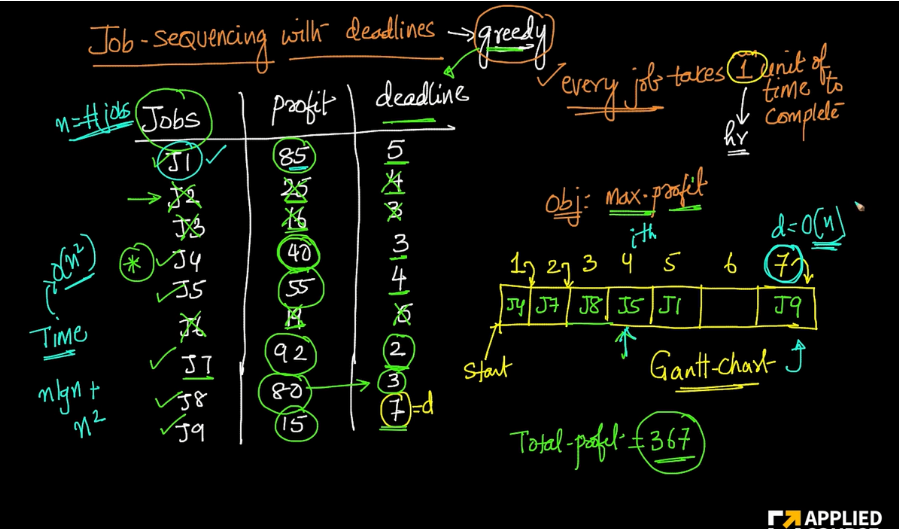 Job-sequencing with deadlines → greedy
✓ every job takes 1 unit of
time to
complete
hr
n=#jobs
Jobs profit deadline
J1 85 5
J2 25 4
J3 16 3
J4 40 3
J5 55 4
J6 19 5
J7 92 2
J8 80 3
J9 15 7=d
O(n²)
Time
nlgn +
n²
*
obj: max. profit
ith
d=O(n)
1 2 3 4 5 6 7
J4 J7 J8 J5 J1 J9
Start
Gantt-chart
Total-profit = 367
APPLIED